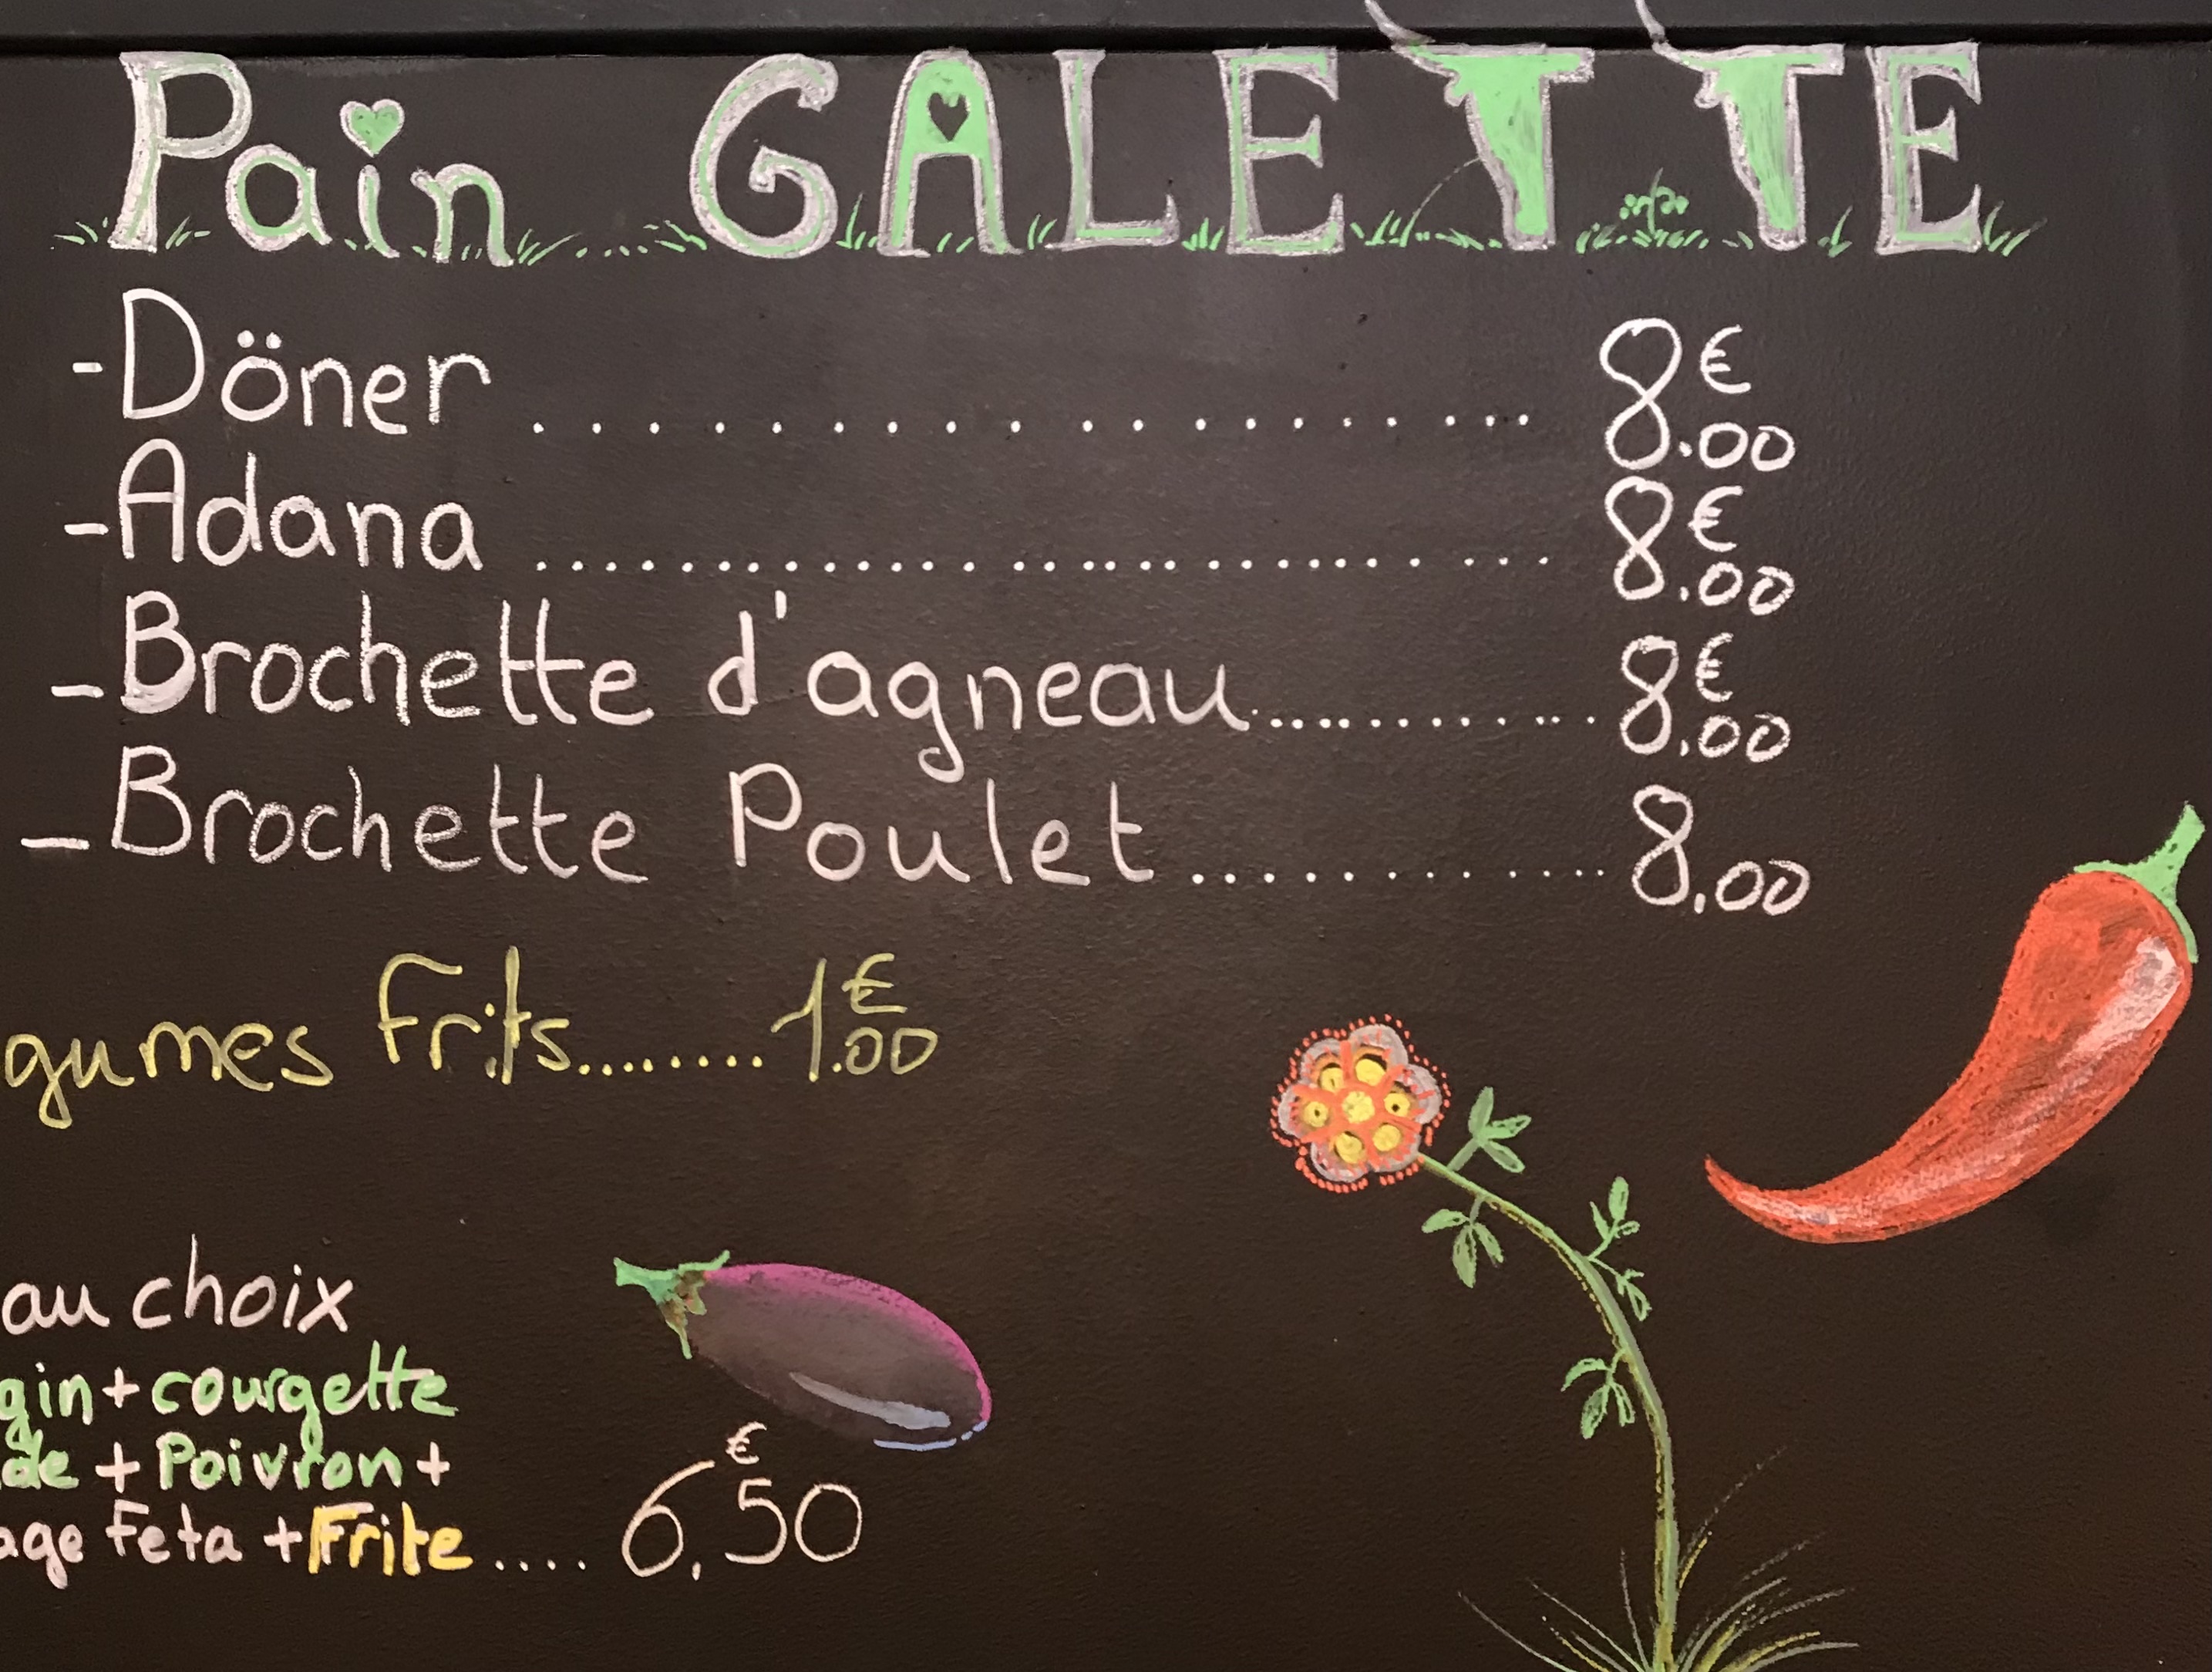 Pain GALETTE
-Döner .................... 8€.00
-Adana .................... 8€.00
-Brochette d'agneau............ 8€.00
-Brochette Poulet............ 8.00
gumes Frits........ 1€.00
au choix
gin+courgette
de + Poivron+
age Feta +Frite.... 6,€50